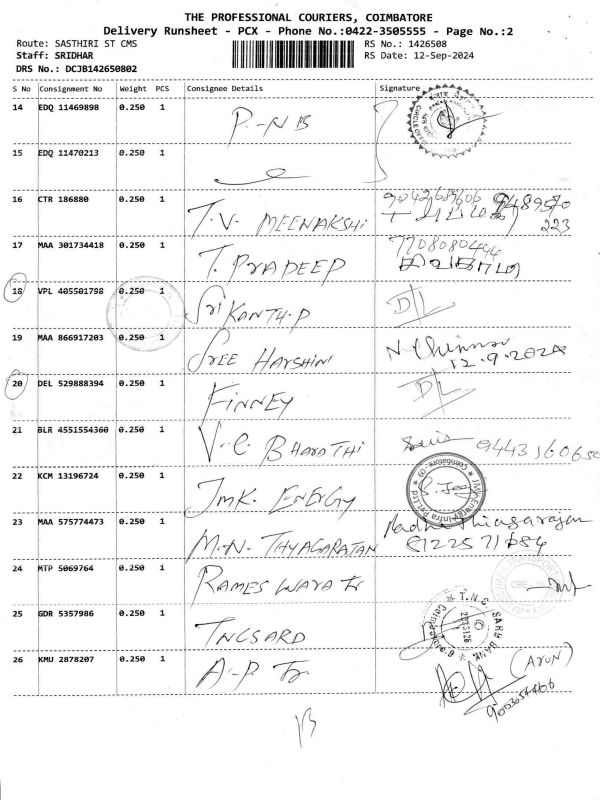 THE PROFESSIONAL COURIERS, COIMBATORE
Delivery Runsheet - PCX - Phone No.:0422-3505555 - Page No.:2
Route: SASTHIRI ST CMS RS No.: 1426508
Staff: SRIDHAR RS Date: 12-Sep-2024
DRS No.: DCJB142650802
S No Consignment No Weight PCS Consignee Details Signature
14 EDQ 11469898 0.250 1 P.-NB
15 EDQ 11470213 0.250 1
16 CTR 186880 0.250 1 T.V. MEENAKSHI
223
17 MAA 301734418 0.250 1 T. PRADEEP 7708080444
18 VPL 405501798 0.250 1 Sri KANTH.P D/L
19 MAA 866917203 0.250 1 SREE HARSHINI
12.9.2024
20 DEL 529888394 0.250 1 FINNEY D/L
21 BLR 4551554360 0.250 1 V.C. BHARATHI 9443160650
22 KCM 13196724 0.250 1 JMK. ENERGY
23 MAA 575774473 0.250 1 M.N. THYAGARAJAN Radha Thiagarajan
24 MTP 5069764 0.250 1 RAMESWARA Tr
25 GDR 5357986 0.250 1 TNCSARD
26 KMU 2878207 0.250 1 A.P. Tr (ARUN)